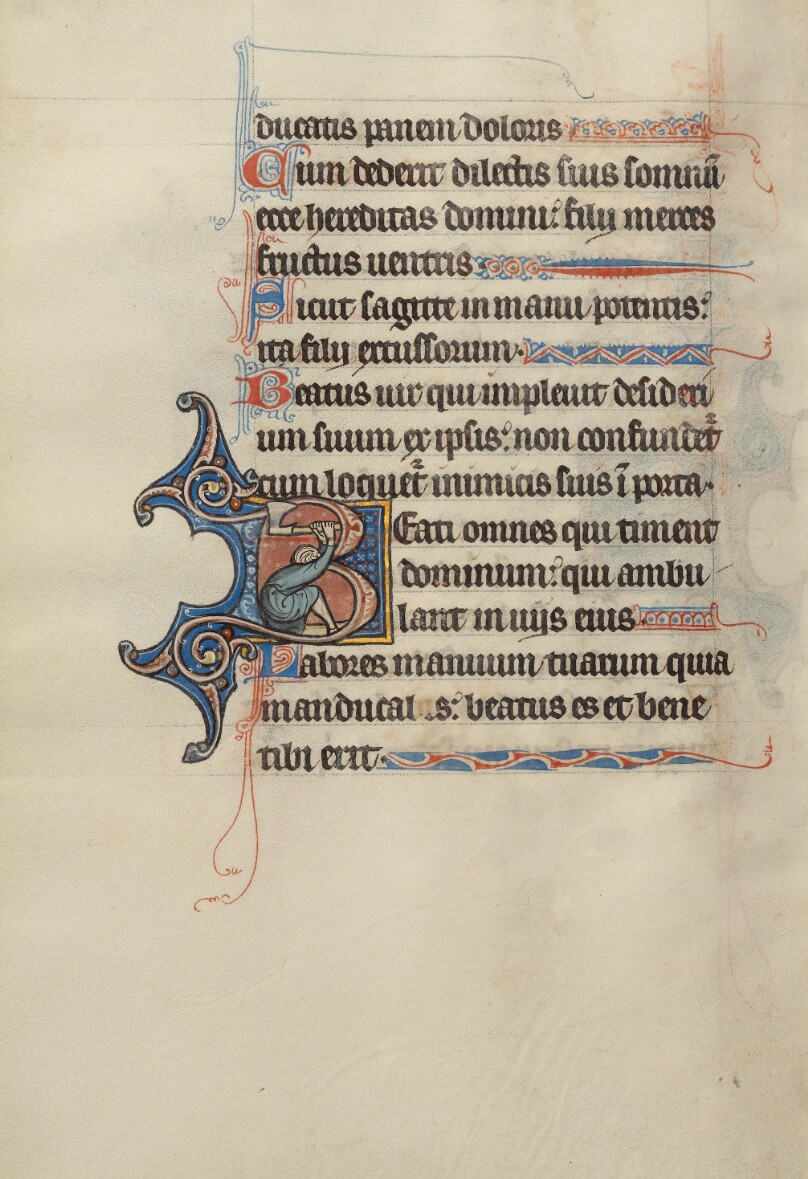 ducatis panem doloris
Cum dederit dilectis suis somnū
ecce hereditas domini: filij merces
fructus uentris
Sicut sagitte in manu potentis:
ita filij excussorum.
Beatus uir qui impleuit desideri
um suum ex ipsis: non confundet᷑
cum loquet᷑ inimicis suis ī porta.
Beati omnes qui timent
dominum: qui ambu
lant in uijs eius
Labores manuum tuarum quia
s: beatus es et bene
tibi erit.